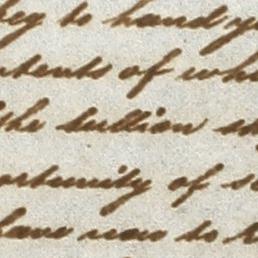 beg to hand y
ntents of wh
the bullion
ortunity of s
have now to t